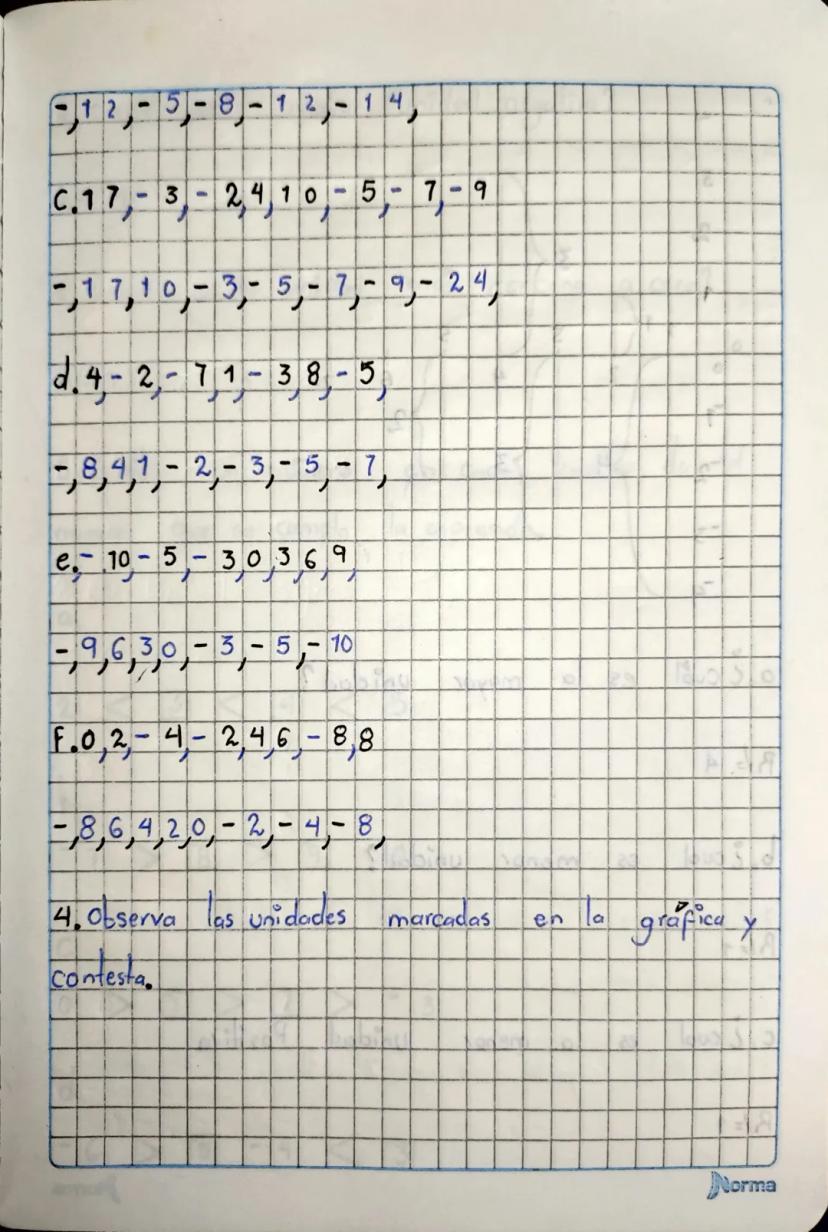 -,12,-5,-8,-12,-14,
C.17,-3,-2,4,10,-5,-7,-9
-,17,10,-3,-5,-7,-9,-24,
d.4,-2,-7,1,-3,8,-5,
-,8,4,1,-2,-3,-5,-7,
e,-10,-5,-3,0,3,6,9,
-,9,6,3,0,-3,-5,-10
F.0,2,-4,-2,4,6,-8,8
-,8,6,4,2,0,-2,-4,-8,
4. Observa las unidades marcadas en la gráfica y
contesta.
Norma